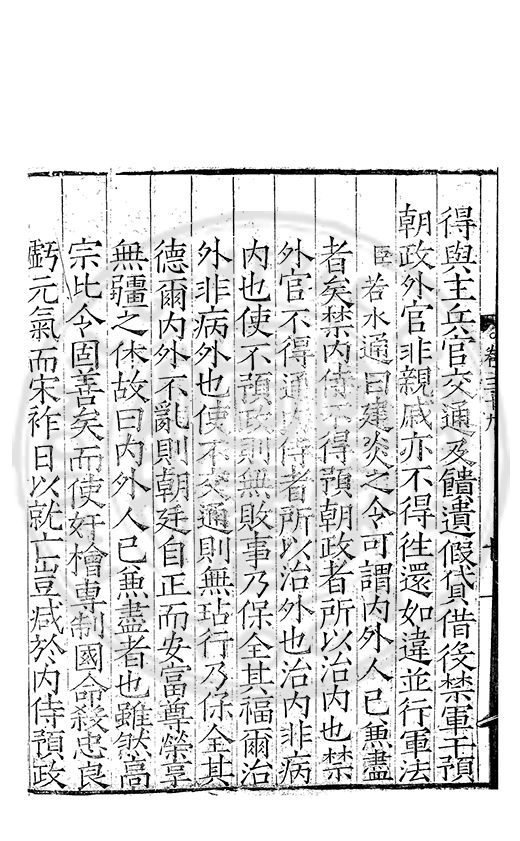 得與主兵官交通及饋遺假貸借役禁軍干預
朝政外官非親戚亦不得徃還如違並行軍法
臣若水通曰建炎之令可謂內外人己兼盡
者矣禁內侍不得預朝政者所以治內也禁
外官不得通內侍者所以治外也治內非病
內也使不預政則無敗事乃保全其福爾治
外非病外也使不交通則無玷行乃保全其
德爾內外不亂則朝廷自正而安富尊榮享
無疆之休故曰內外人已兼盡者也雖然高
宗比令固善矣而使奸檜專制國命殺忠良
虧元氣而宋祚日以就亡豈减於內侍預政